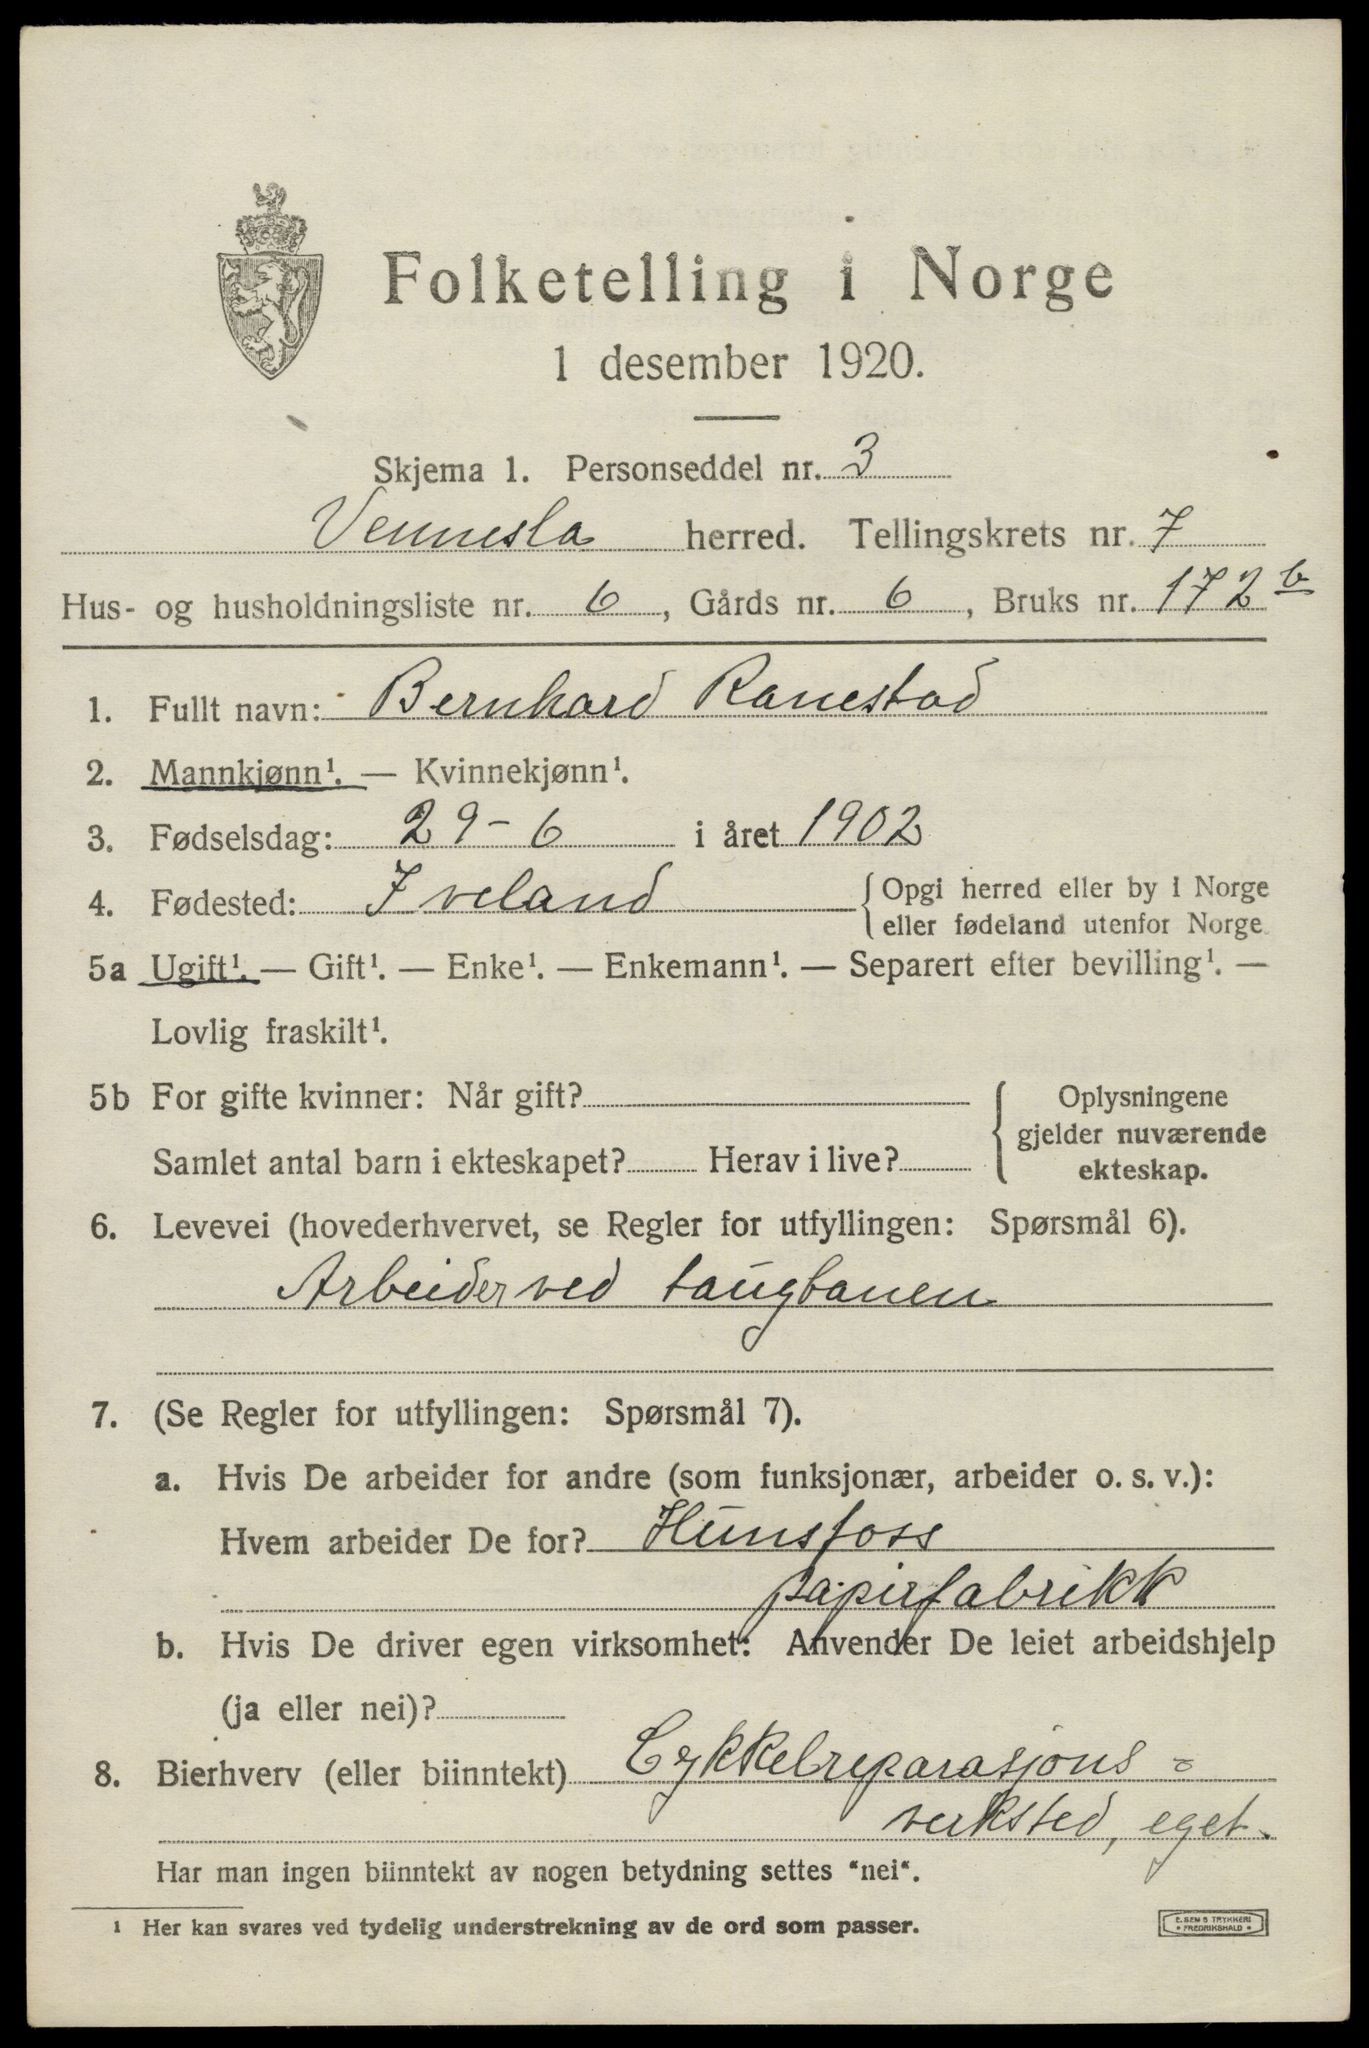 Folketelling i Norge
1 desember 1920.
Skjema 1. Personseddel nr. 3
Vennesla herred. Tellingskrets nr. 7
Hus- og husholdningsliste nr. 6, Gårds nr. 6, Bruks nr. 172 b
1. Fullt navn: Bernhard Ranestad
2. Mannkjønn¹. — Kvinnekjønn¹.
3. Fødselsdag: 29-6 i året 1902
4. Fødested: Iveland { Opgi herred eller by i Norge
eller fødeland utenfor Norge
5a Ugift¹. — Gift¹. — Enke¹. — Enkemann¹. — Separert efter bevilling¹. —
Lovlig fraskilt¹.
5b For gifte kvinner: Når gift? { Oplysningene
gjelder nuværende
Samlet antal barn i ekteskapet? Herav i live? ekteskap.
6. Levevei (hovederhvervet, se Regler for utfyllingen: Spørsmål 6).
Arbeider ved taugbanen
7. (Se Regler for utfyllingen: Spørsmål 7).
a. Hvis De arbeider for andre (som funksjonær, arbeider o. s. v.):
Hvem arbeider De for? Hunsfoss
papirfabrikk
b. Hvis De driver egen virksomhet: Anvender De leiet arbeidshjelp
(ja eller nei)?
8. Bierhverv (eller biinntekt) Cykkelreparasjons =
verksted, eget.
Har man ingen biinntekt av nogen betydning settes "nei".
¹ Her kan svares ved tydelig understrekning av de ord som passer.
E. SEM'S TRYKKERI
• FREDRIKSHALD •